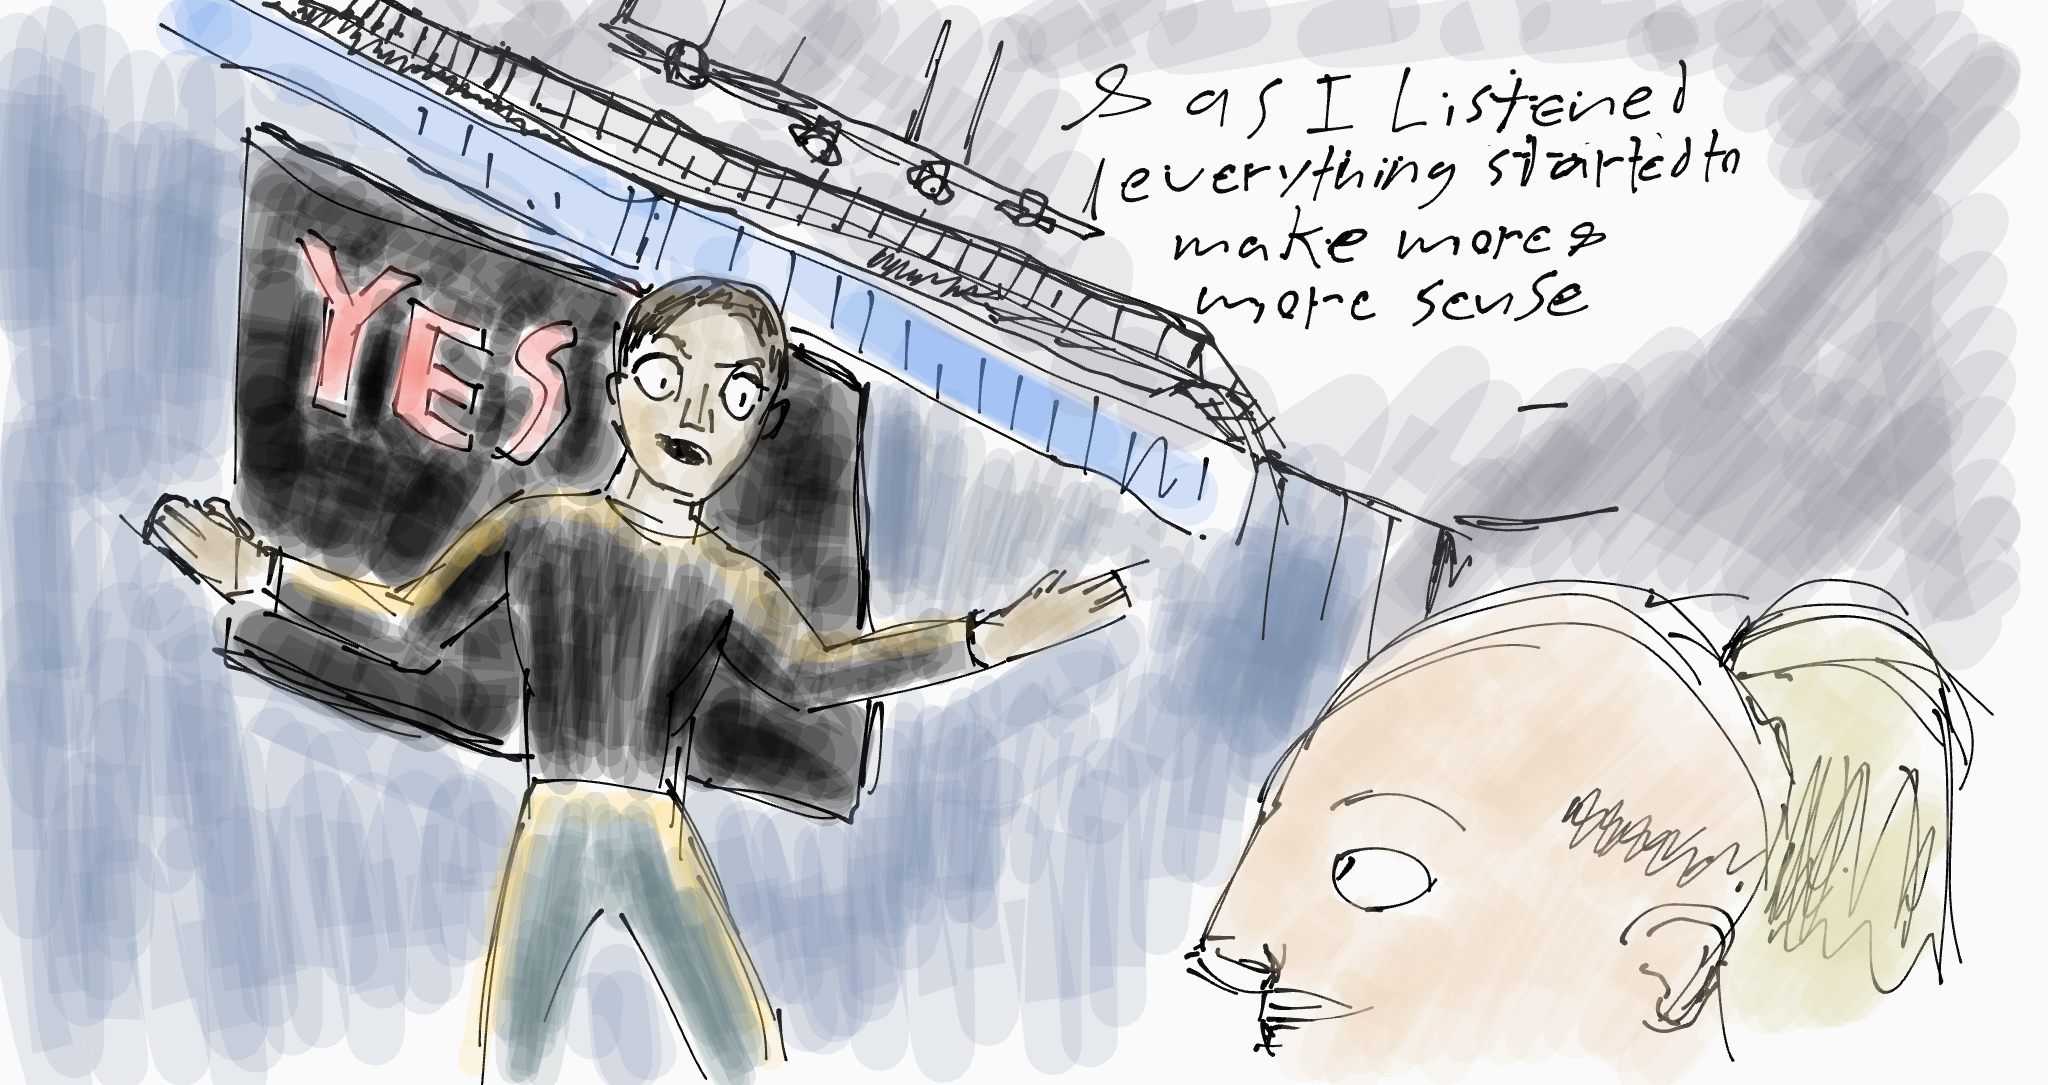 YES
& as I Listened
everything started to
make more &
more sense